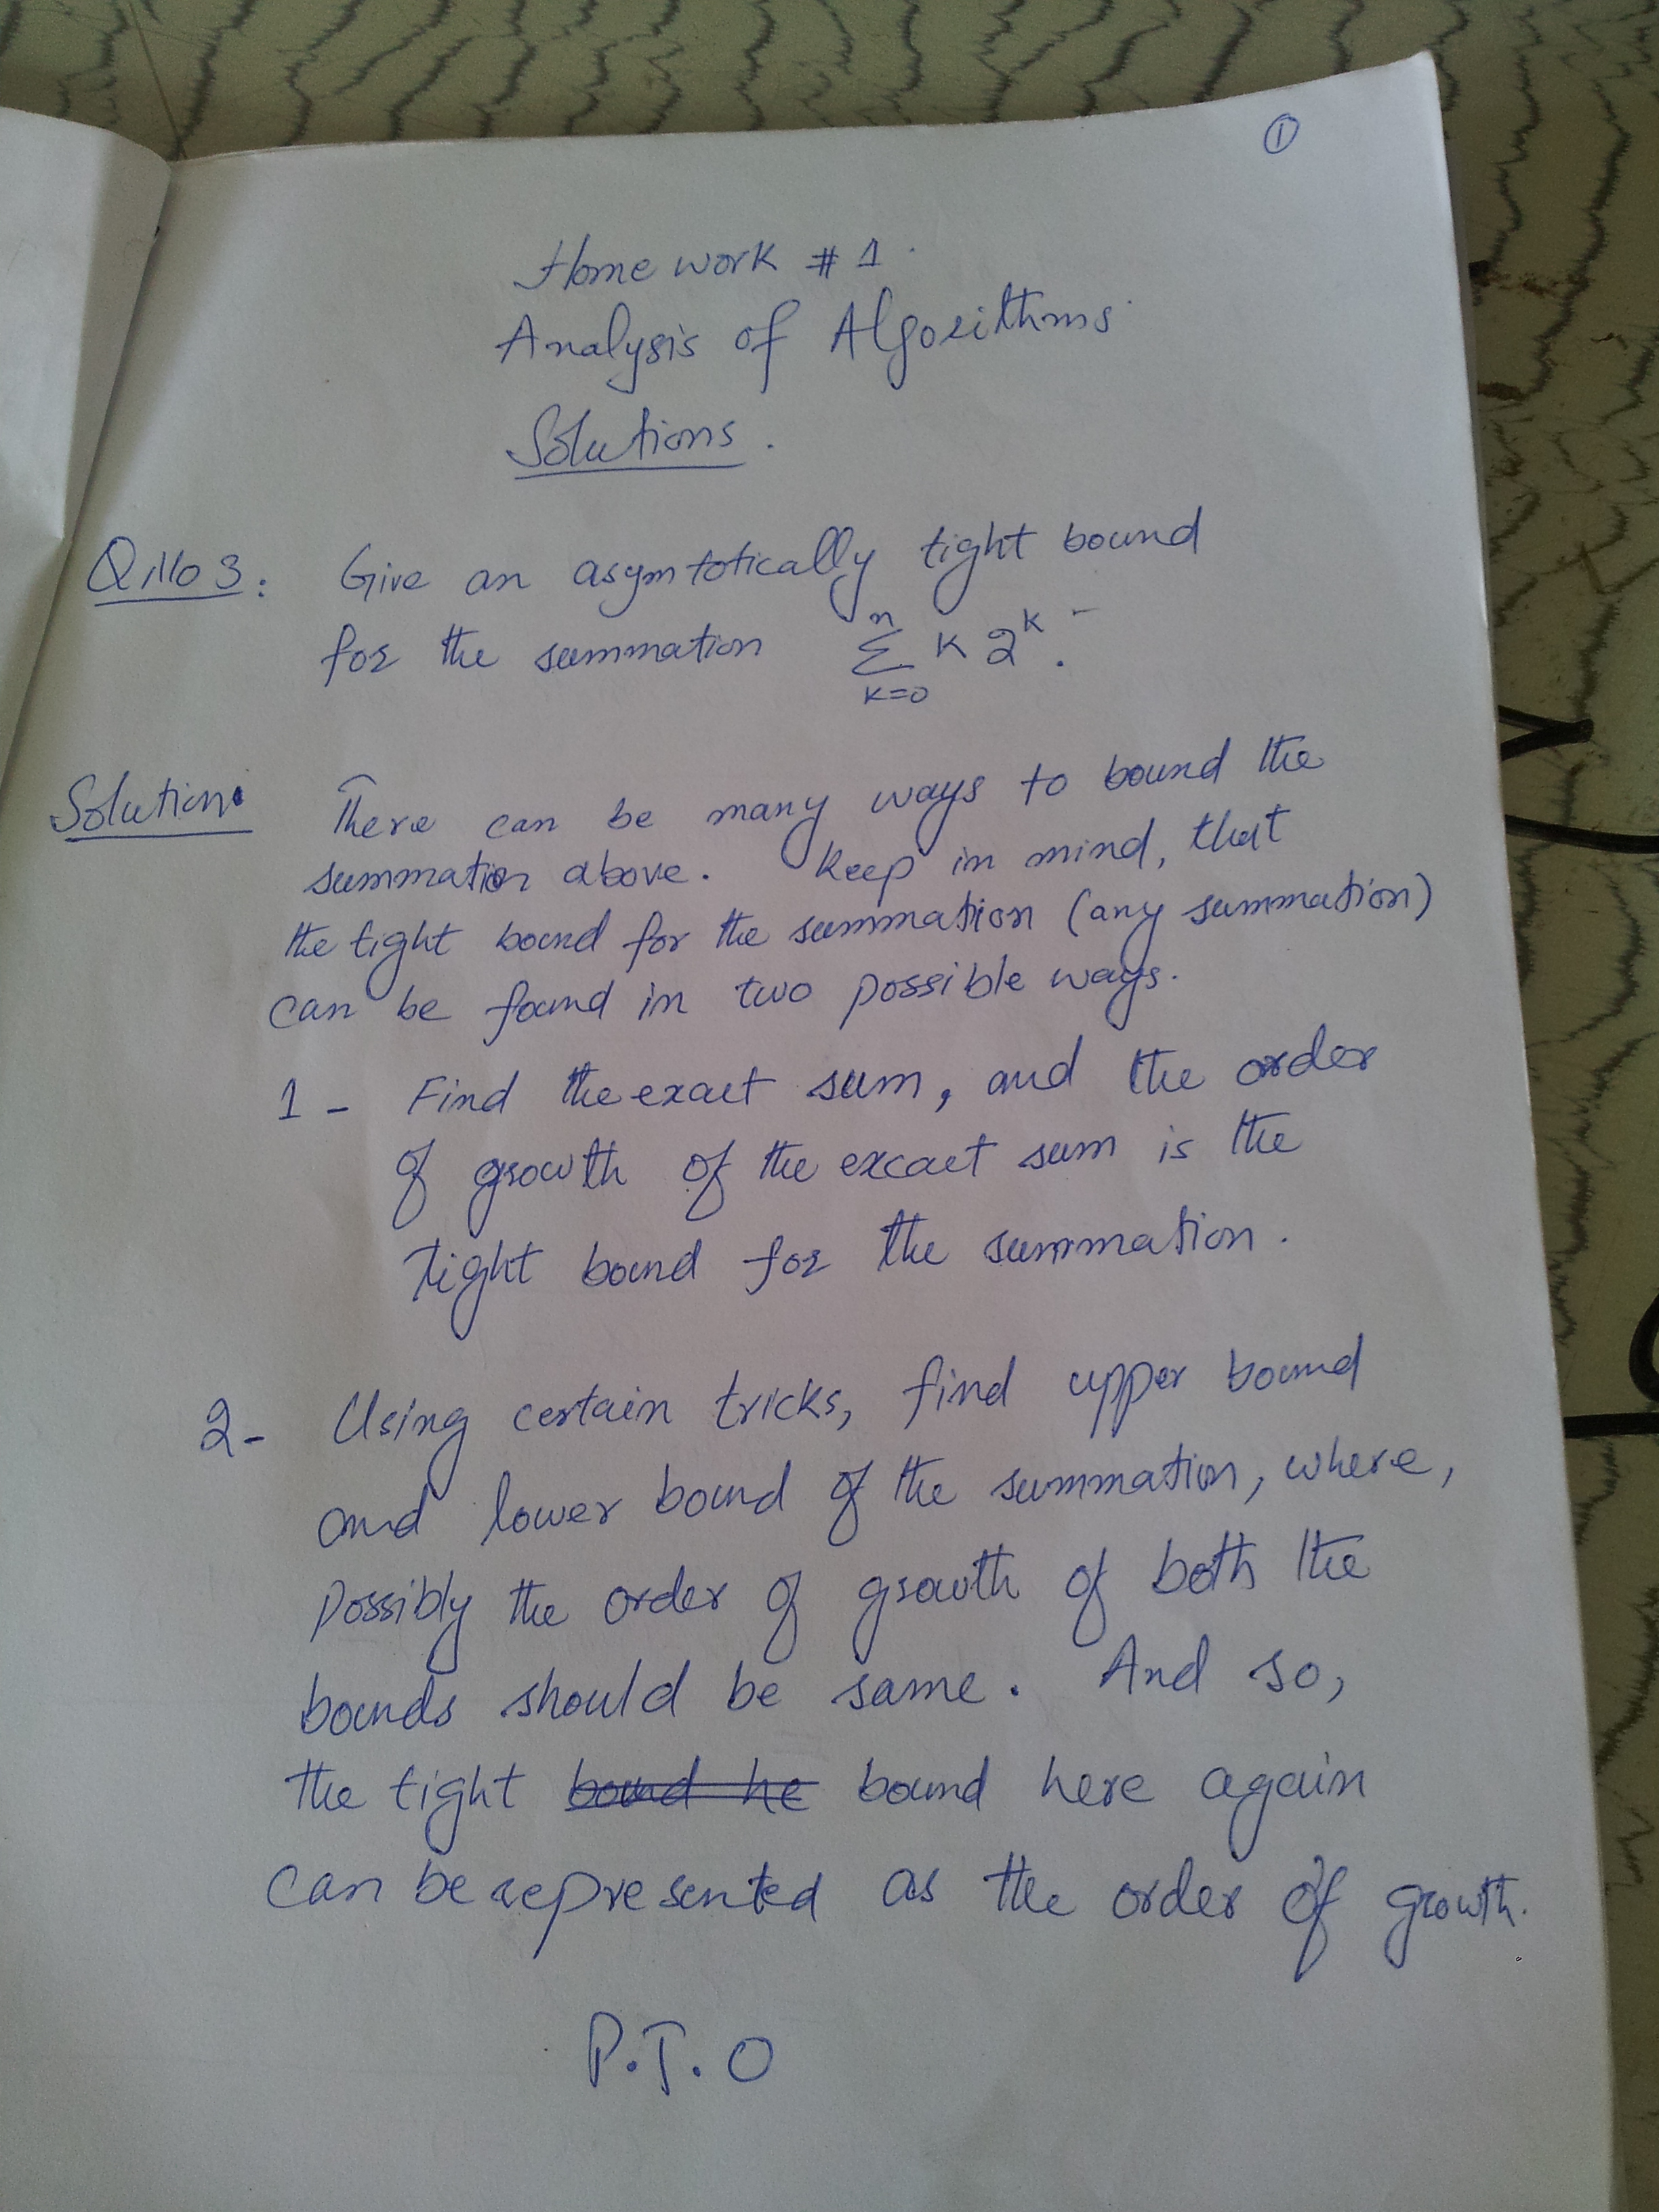 ①
Home work # 1
Analysis of Algorithms
Solutions.
Q1163: Give an asymtotically tight bound
for the summation n Σ k=0 k 2^k.
Solution: There can be many ways to bound the
summation above. Keep in mind, that
the tight bound for the summation (any summation)
can be found in two possible ways.
1- Find the exact sum, and the order
of growth of the exact sum is the
tight bound for the summation.
2- Using certain tricks, find upper bound
and lower bound of the summation, where,
possibly the order of growth of both the
bounds should be same. And so,
the tight bound he bound here again
can be represented as the order of growth.
P.T.O